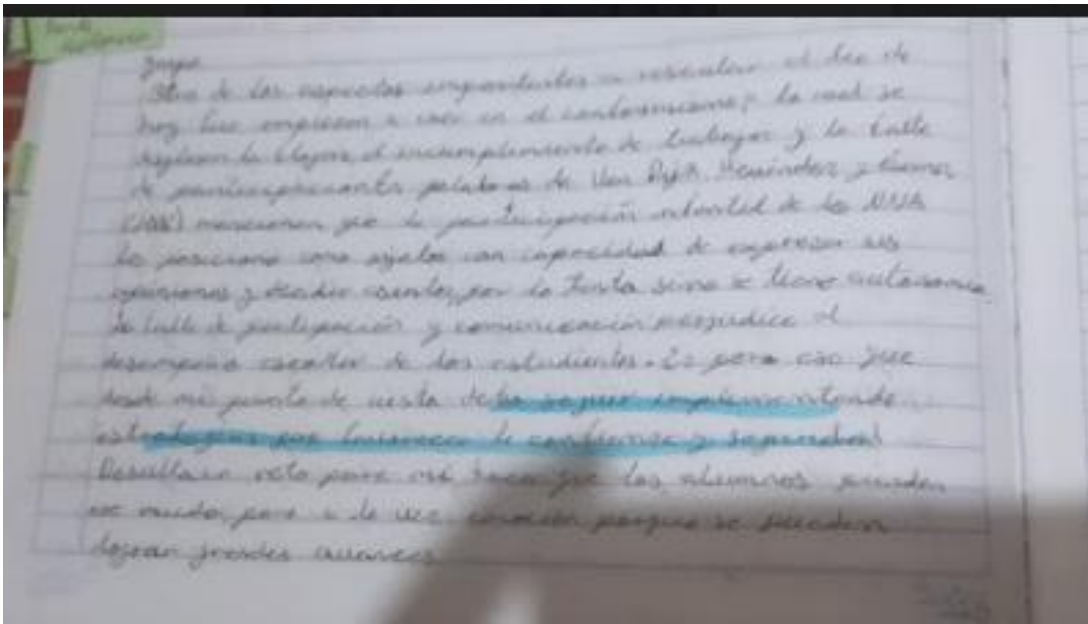 grupo
Otro de los aspectos importantes a rescatar el dia de
hoy fue empiezan a caer en el conformismo, la cual se
reflejan la el incumplimiento de trabajos y la falta
de palabras de Van Dijk, Menéndez y
mencionan que la participación infantil de los NNA
los posiciona como sujetos con capacidad de expresar sus
opiniones y decidir por lo tanto sino se tiene autonomia
la falta de participación y comunicación perjudica el
desempeño escolar de los estudiantes. Es para eso que
desde mi punto de vista debo seguir implementando
estrategias que favorezca la confianza y seguridad
reto para mi hace que los alumnos pueden
miedo, pero a la vez emoción porque se pueden
grandes avances